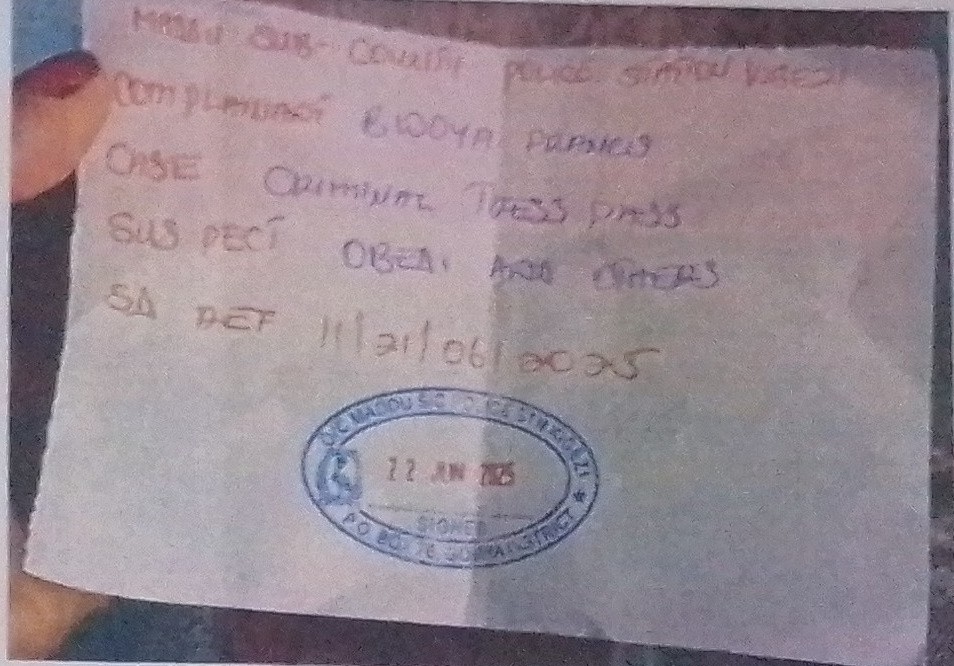 SUB-COUNTY POLICE STATION
COMPLAINANT BIDOYA FRANCIS
CASE CRIMINAL TRESS PASS
SUSPECT OBEDI AND OTHERS
SD REF 11/21/06/2025
O/C MADDU S/C POLICE STATION
22 JUN 2025
SIGNED
P.O. BOX 76, GOMBA DISTRICT